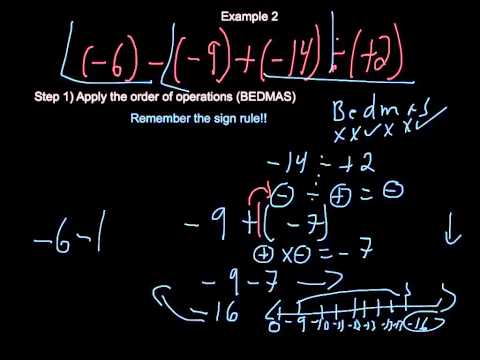 Example 2
(-6) - (-9) + (-14) ÷ (+2)
Step 1) Apply the order of operations (BEDMAS)
Remember the sign rule!!
Bedmas
x x ✓ x x ✓
-14 ÷ +2
⊖ ÷ ⊕ = ⊖
-9 + (-7)
⊕ x ⊖ = -7
-6 - 1
-9 - 7
-16
0 -9 -10 -11 -12 -13 -16